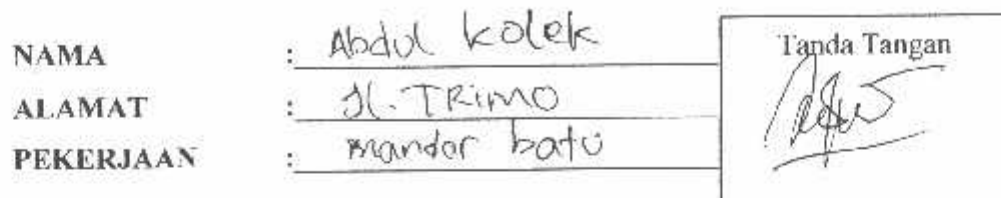 NAMA : Abdul kolek
ALAMAT : Jl. TRimo
PEKERJAAN : mandor batu
Tanda Tangan